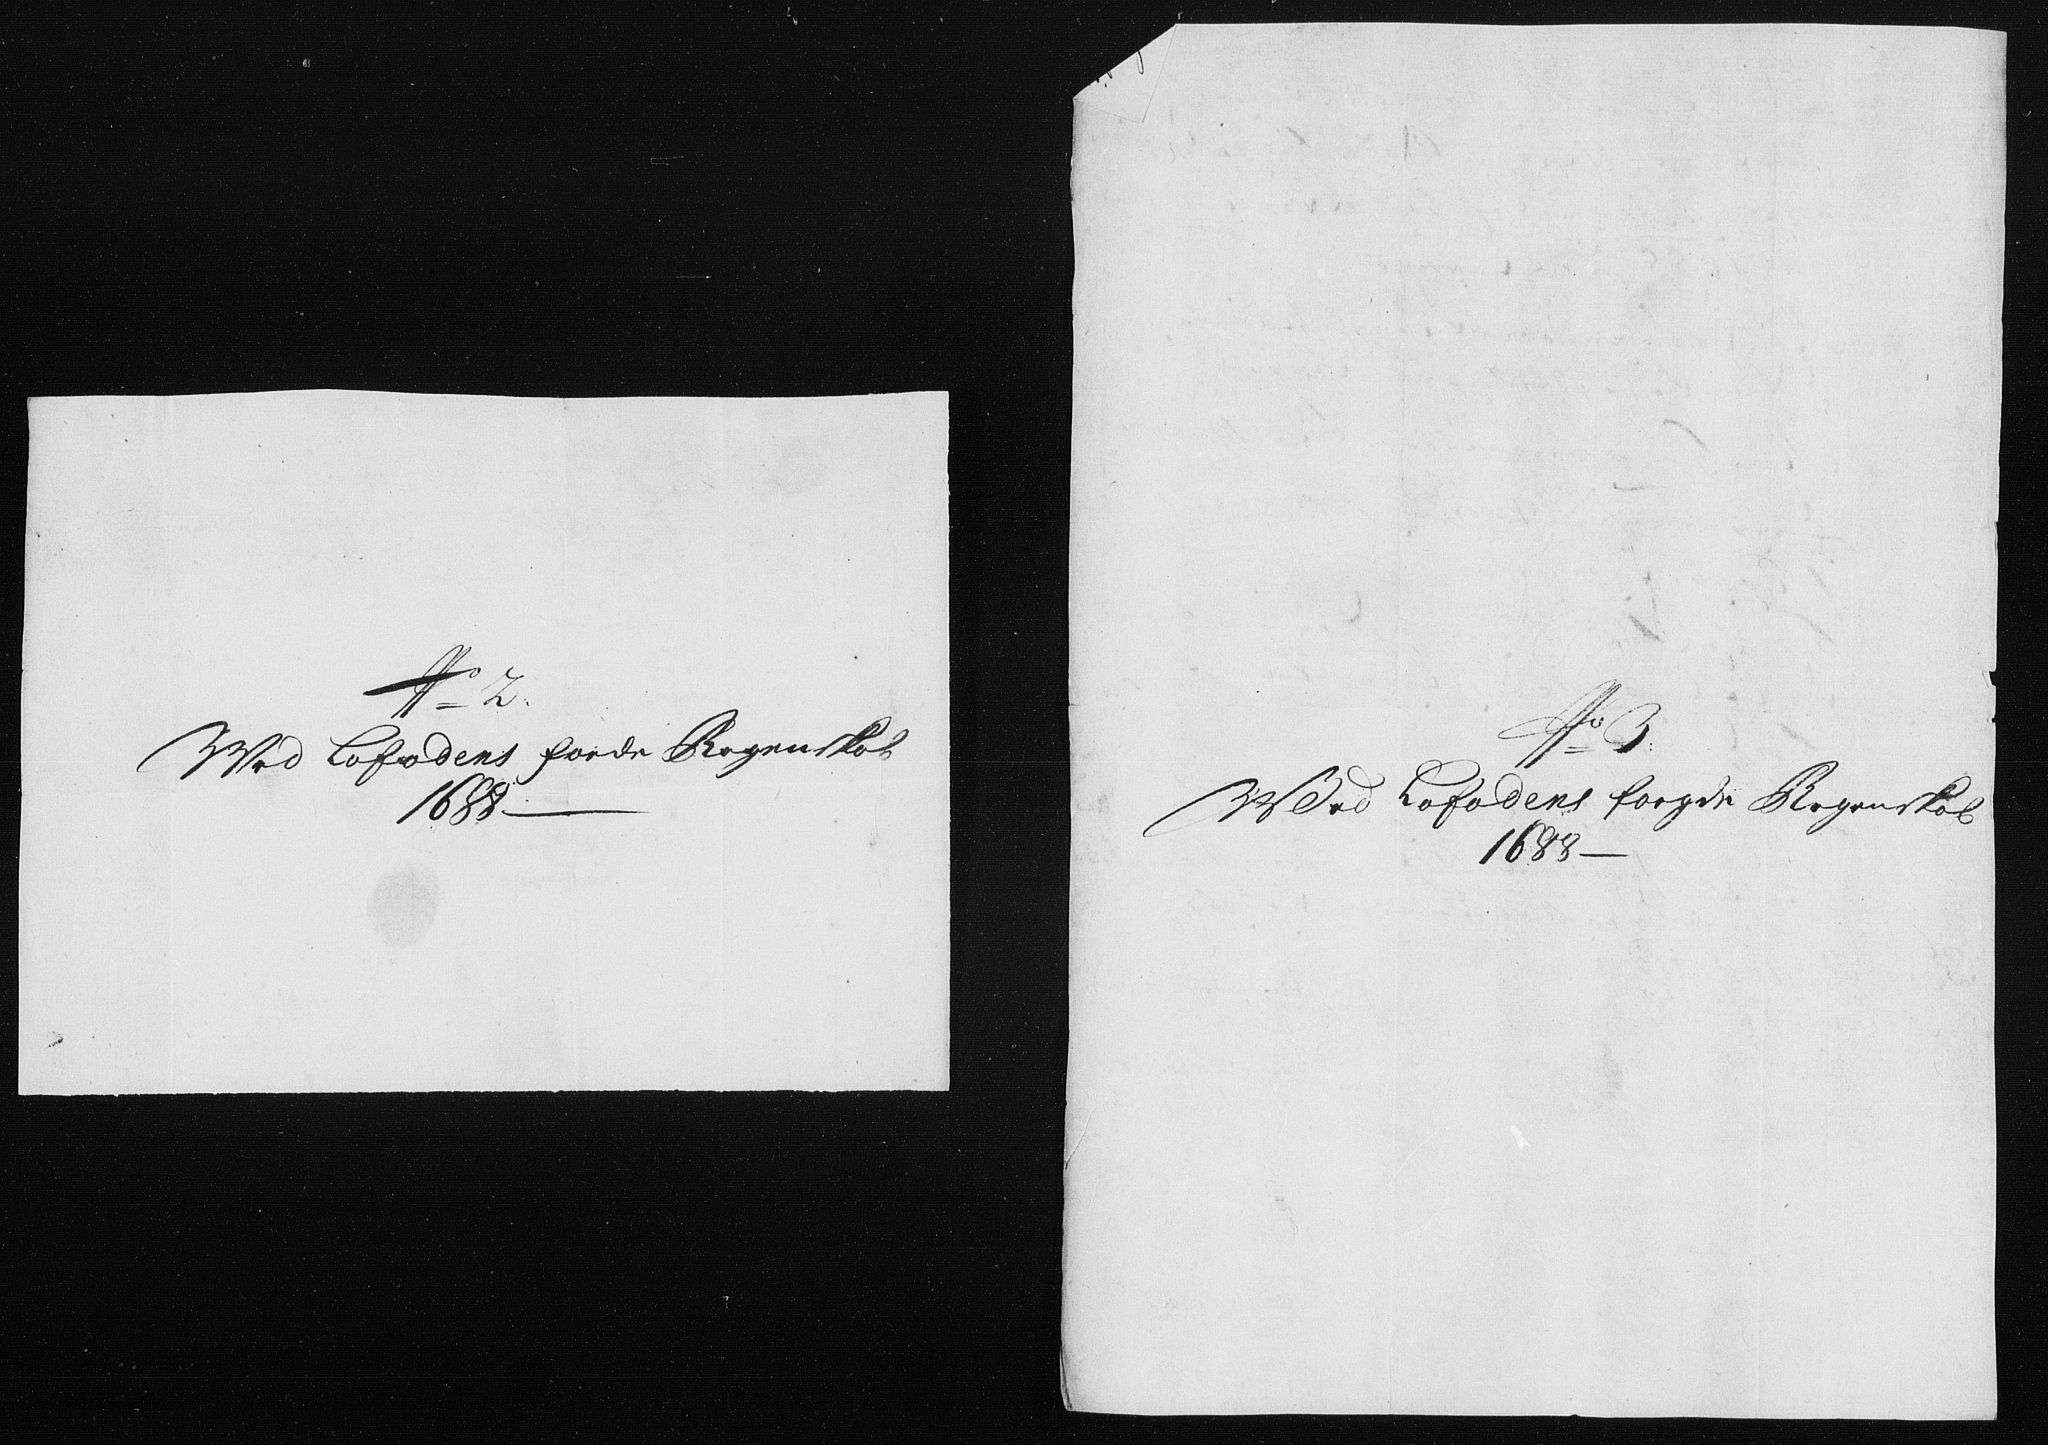 No 2.
Wed Lofodens foede Regenskab
1688
No 3.
Wed Lofodens foegde Regenskab
1688